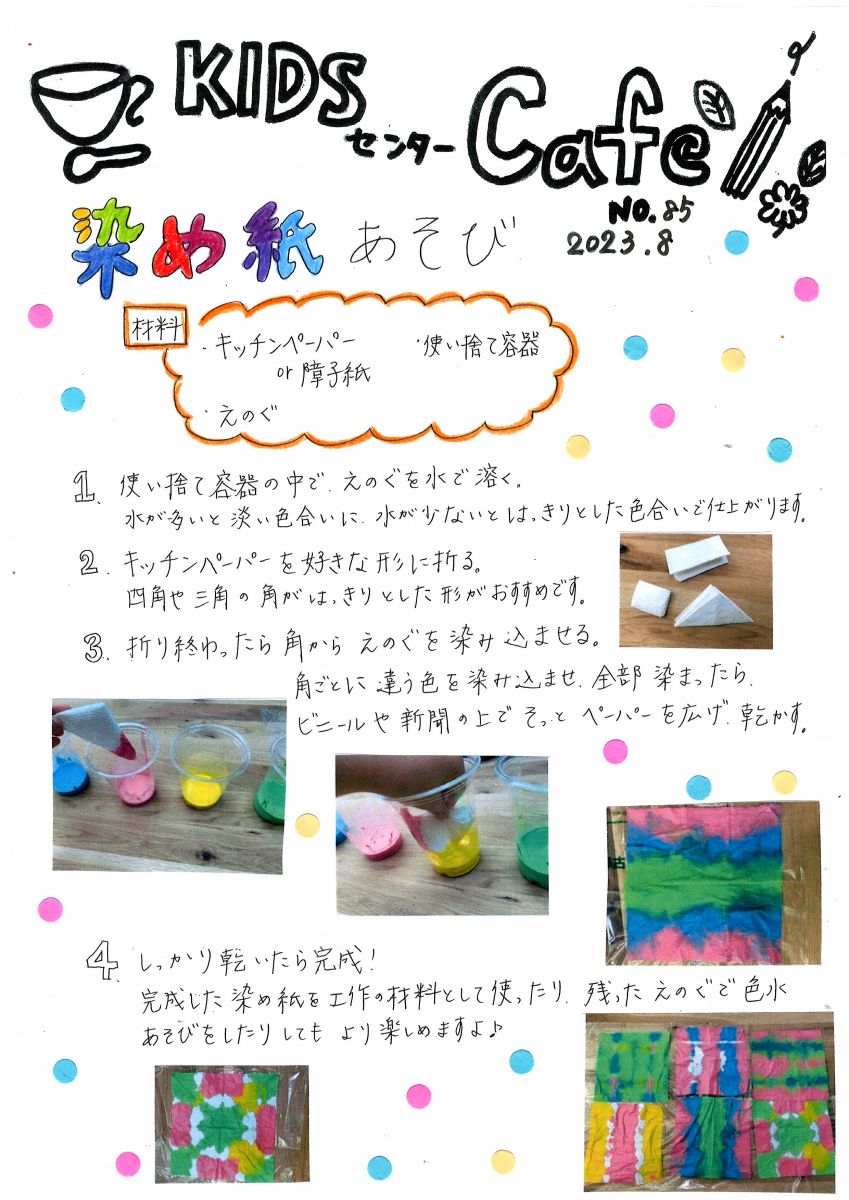 KIDS
センター Cafe
NO.85
2023.8
染め紙あそび
材料
・キッチンペーパー
or 障子紙
・使い捨て容器
・えのぐ
1. 使い捨て容器の中で、えのぐを水で溶く。
水が多いと淡い色合いに、水が少ないとはっきりとした色合いで仕上がります。
2. キッチンペーパーを好きな形に折る。
四角や三角の角がはっきりとした形がおすすめです。
3. 折り終わったら角からえのぐを染み込ませる。
角ごとに違う色を染み込ませ、全部染まったら、
ビニールや新聞の上でそっとペーパーを広げ、乾かす。
4. しっかり乾いたら完成!
完成した染め紙を工作の材料として使ったり、残ったえのぐで色水
あそびをしたりしてもより楽しめますよ♪